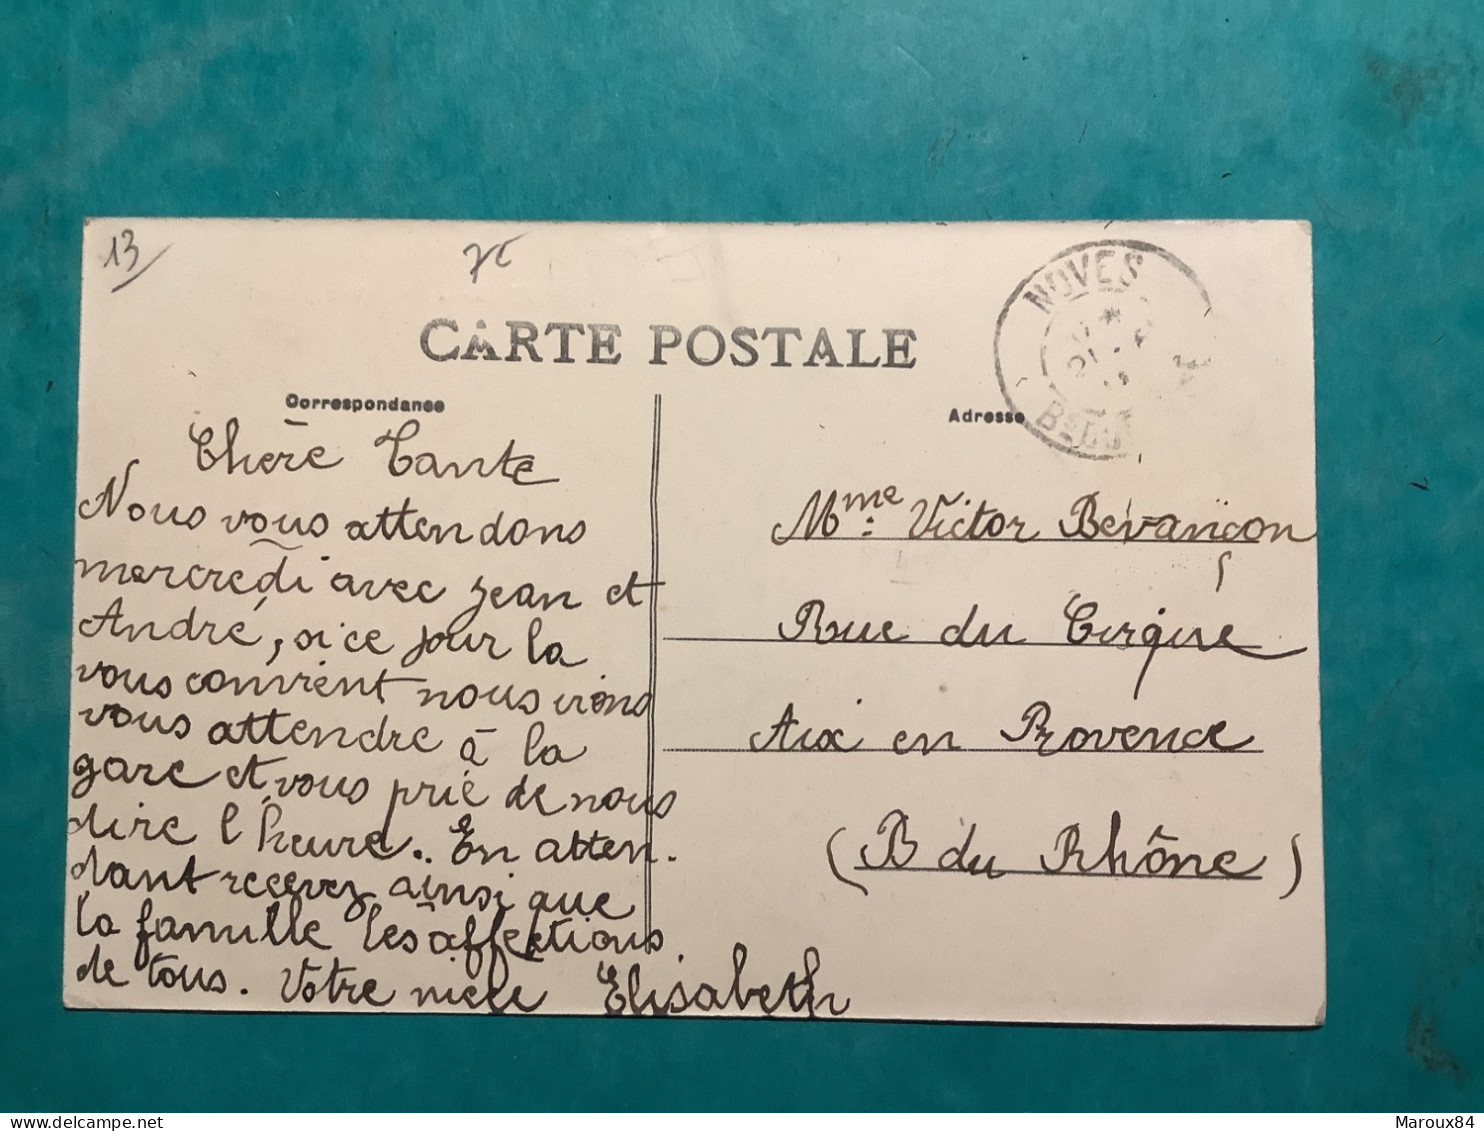 13
CARTE POSTALE
Correspondance
Chère Tante
Nous vous attendons
mercredi avec Jean et
André, si ce jour la
vous convient nous irons
vous attendre à la
gare et vous prie de nous
dire l'heure. En atten-
dant recevez ainsi que
la famille les affections
de tous. Votre niece Elisabeth
NOVES
Bes DU
Adresse
Mme Victor Bevançon
Rue du Cirque
Aix en Provence
(B du Rhône)
Maroux84